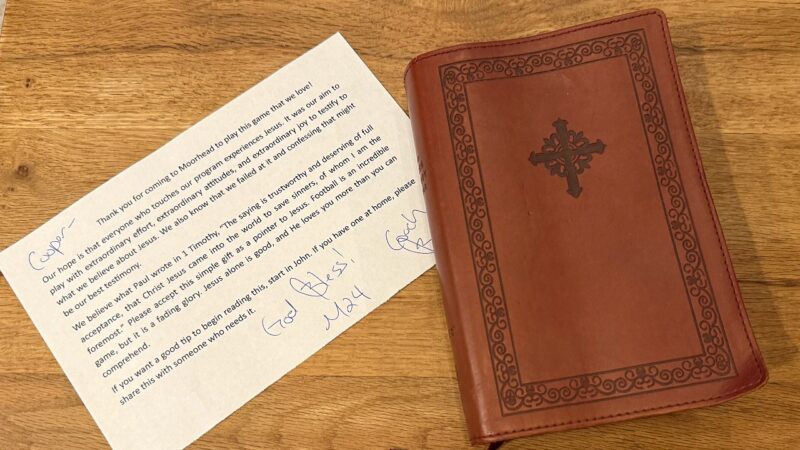 Cooper-
Thank you for coming to Moorhead to play this game that we love!
Our hope is that everyone who touches our program experiences Jesus. It was our aim to
play with extraordinary effort, extraordinary attitudes, and extraordinary joy to testify to
what we believe about Jesus. We also know that we failed at it and confessing that might
be our best testimony.
We believe what Paul wrote in 1 Timothy, "The saying is trustworthy and deserving of full
acceptance, that Christ Jesus came into the world to save sinners, of whom I am the
foremost." Please accept this simple gift as a pointer to Jesus. Football is an incredible
game, but it is a fading glory. Jesus alone is good, and He loves you more than you can
comprehend.
If you want a good tip to begin reading this, start in John. If you have one at home, please
share this with someone who needs it.
God Bless!
Coach